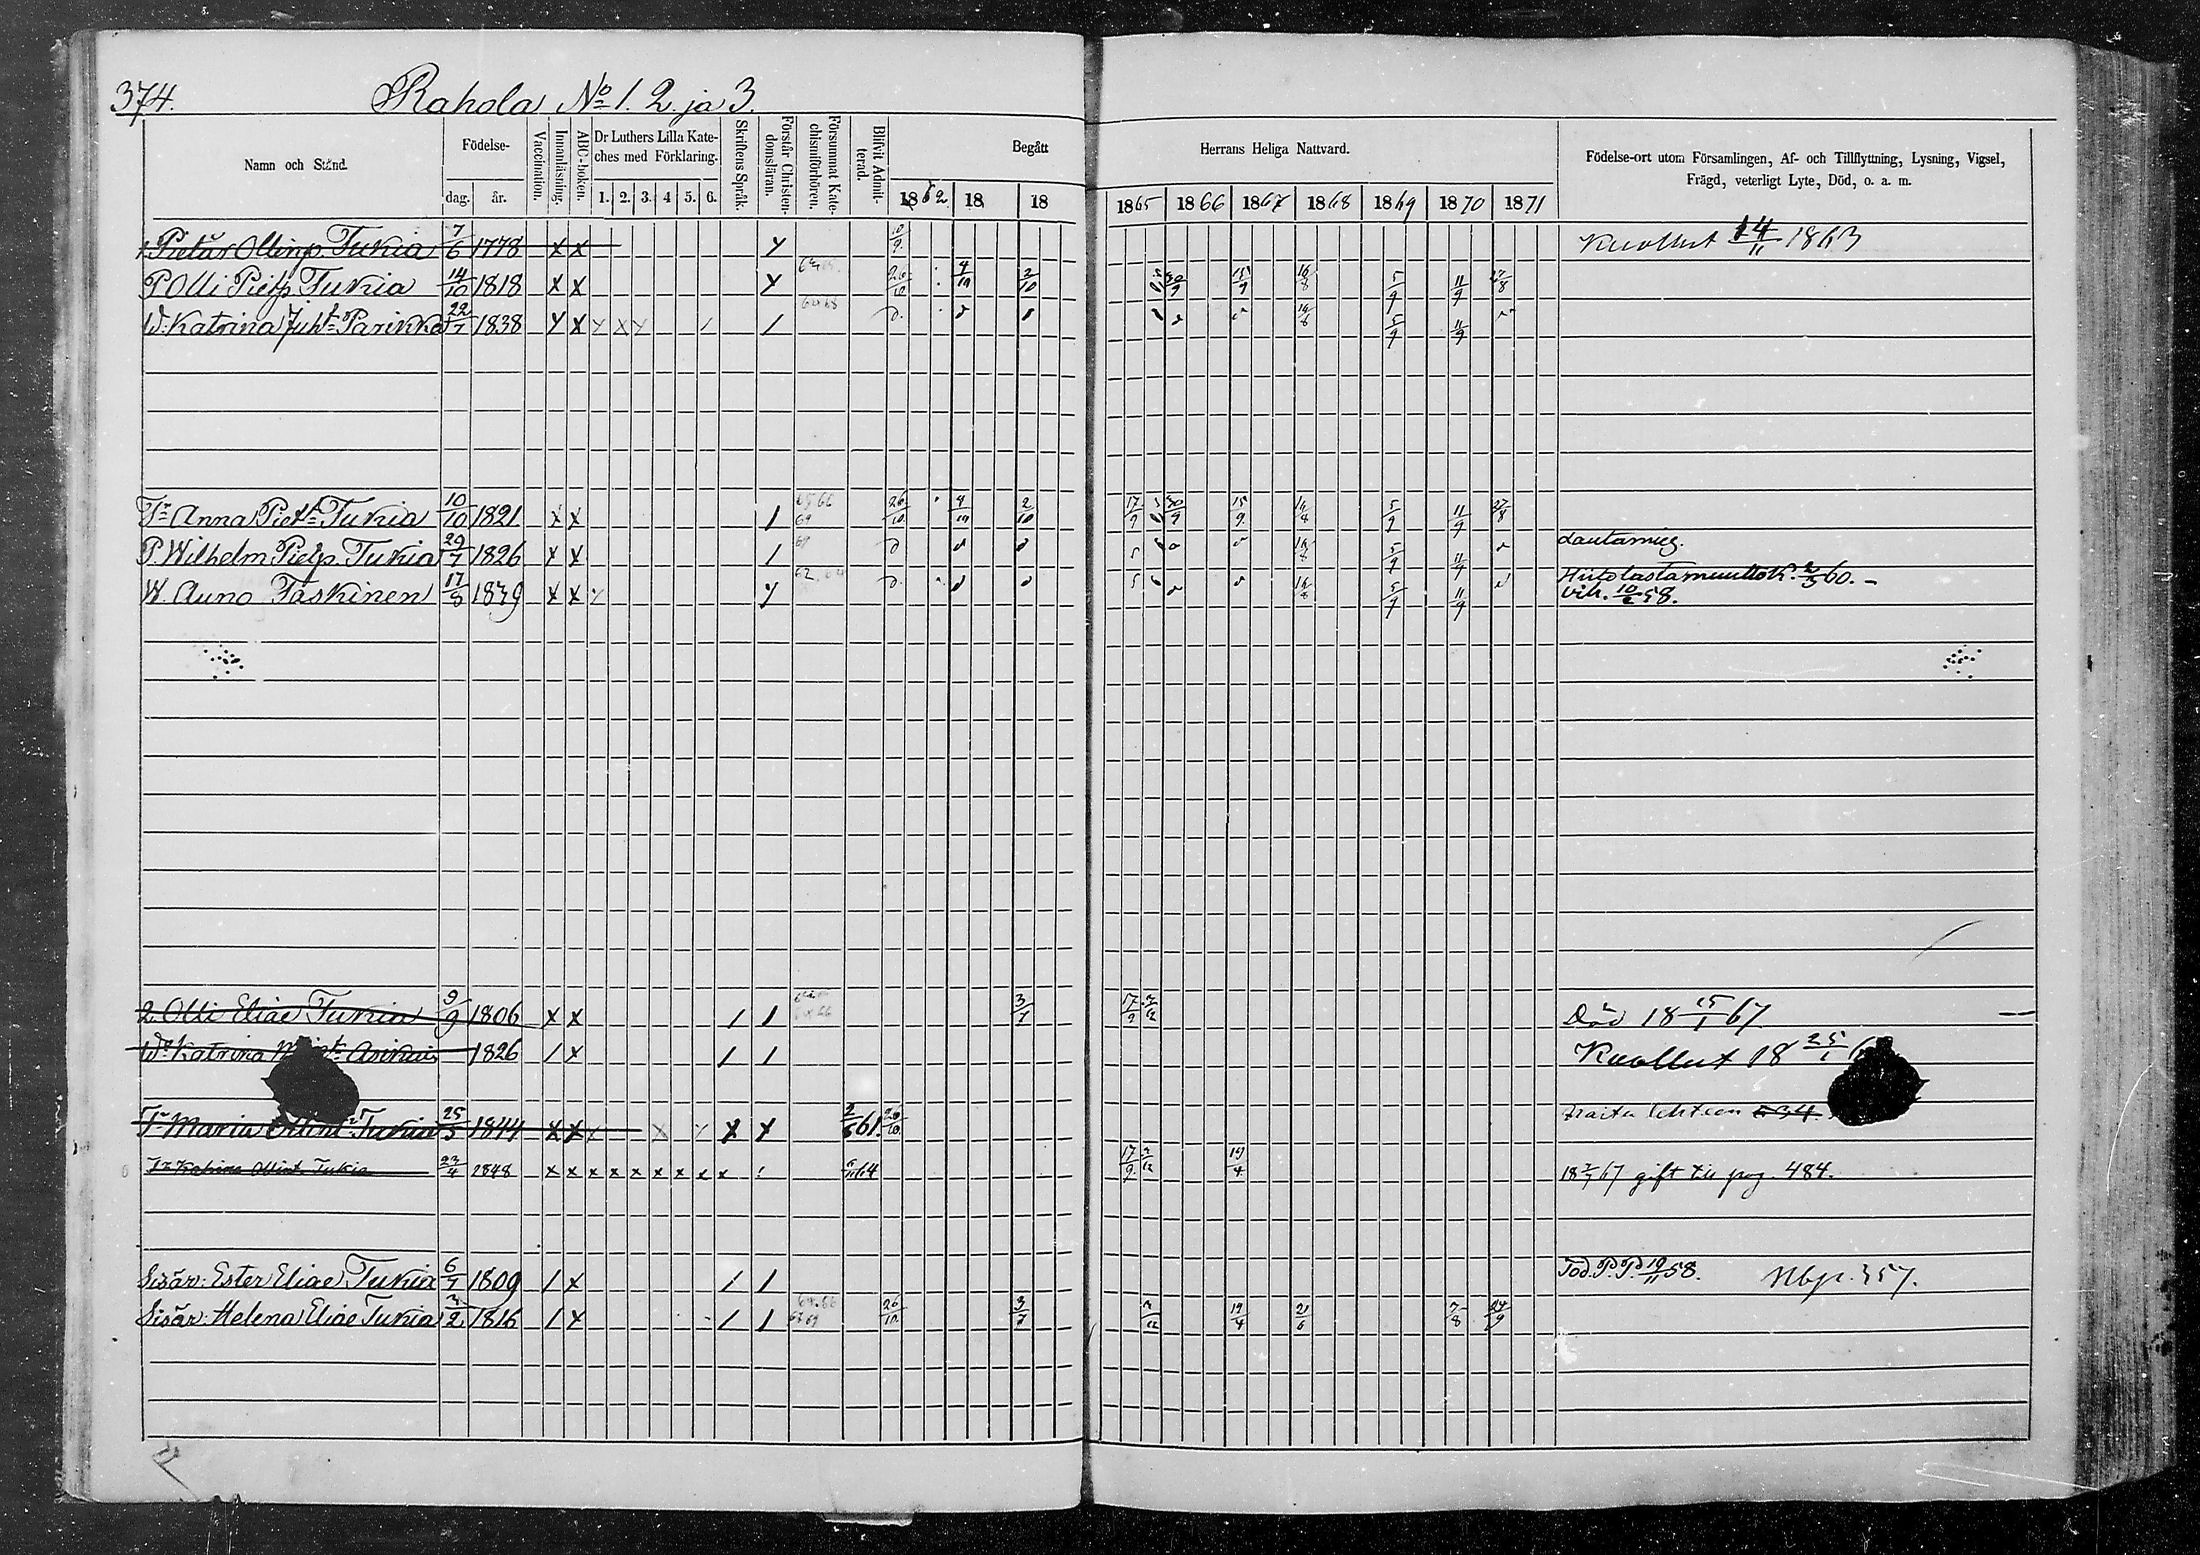 374. Rahola No 1. 2. ja 3.
Namn och Stånd.
Födelse-
dag. år.
Vaccination.
Innanläsning.
ABC-boken.
Dr Luthers Lilla Kate-
ches med Förklaring.
1. 2. 3. 4 5. 6.
Skriftens Språk.
Förstår Christen-
domsläran.
Försummat Kate-
chismiförhören.
Blifvit Admit-
terad.
Begått Herrans Heliga Nattvard.
1862. 18 18 1865 1866 1867 1868 1869 1870 1871
Födelse-ort utom Församlingen, Af- och Tillflyttning, Lysning, Vigsel,
Frägd, veterligt Lyte, Död, o. a. m.
1. Pietar Ollinp. Tukia 7/6 1778 x x y 10/9. Kuollut 14/11 1863
P Olli Pietp. Tukia 14/10 1818 x x y 26/10 4/10 2/10 30/9 15/9 16/8 5/9 11/9 27/8
W. Katrina Juht. Parikka 22/7 1838 y x y x y / / 16/8 5/9 11/9
Tr Anna Piett. Tukia 10/10 1821 x x / 65 66 69 26/10 4/10 2/10 17/9 30/9 15/9 5/9 11/9 27/8
P. Wilhelm Pietp. Tukia 29/7 1826 x x / 69 5/9 11/9 Lautamies.
W. Auno Taskinen 17/8 1839 x x y 16/8 5/9 11/9 Hiitolasta muuttok. 2/5 60. –
vih. 10/2 58.
2 Olli Eliae Tukia 9/9 1806 x x / / 3/7 17/9 2/12 Död 18 15/1 67
Wo Katrina 1826 / x / / Kuollut 18 25/1
Tr Maria Ollint. Tukia 25/5 1844 x x x x 2/6 61. 26/10. 534.
Tr Katrina Ollint. Tukia 23/4 1848 x x x x x x x x x 64 17/9 2/12 19/4 18 2/7 67 gift till pag. 484.
Sisär: Ester Eliae Tukia 6/7 1809 / x / / Tod. P. P. 19/11 58. Nbpr. 357.
Sisär: Helena Eliae Tukia 3/2 1816 / x / / 26/10. 3/7 2/12 19/4 21/6 7/8 24/9